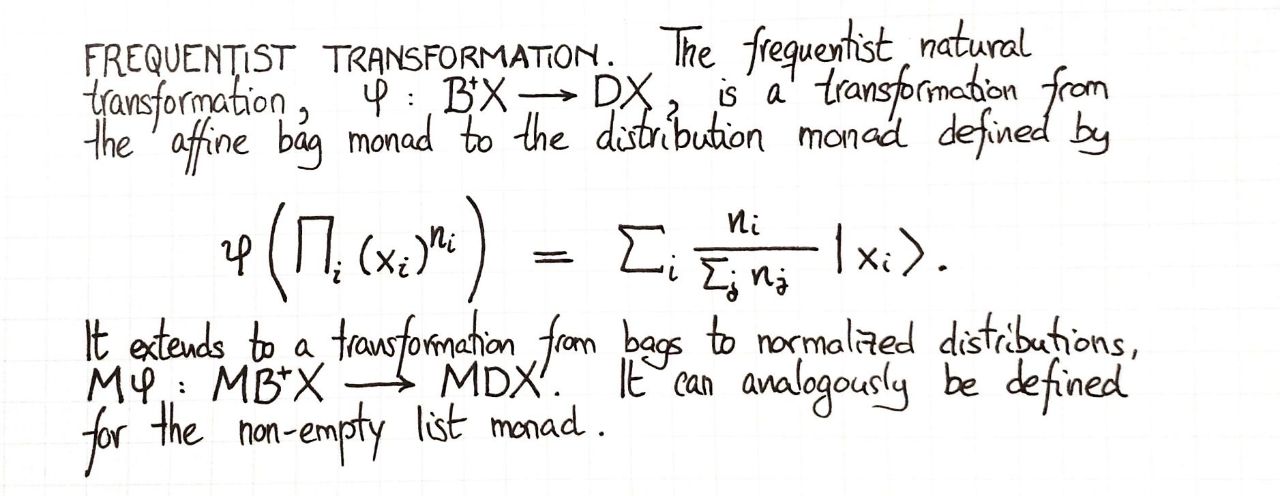 FREQUENTIST TRANSFORMATION. The frequentist natural
transformation, φ : B⁺X ⟶ DX, is a transformation from
the affine bag monad to the distribution monad defined by
φ(∏ᵢ (xᵢ)^{nᵢ}) = ∑ᵢ nᵢ / ∑ⱼ nⱼ |xᵢ⟩.
It extends to a transformation from bags to normalized distributions,
Mφ : MB⁺X ⟶ MDX. It can analogously be defined
for the non-empty list monad.